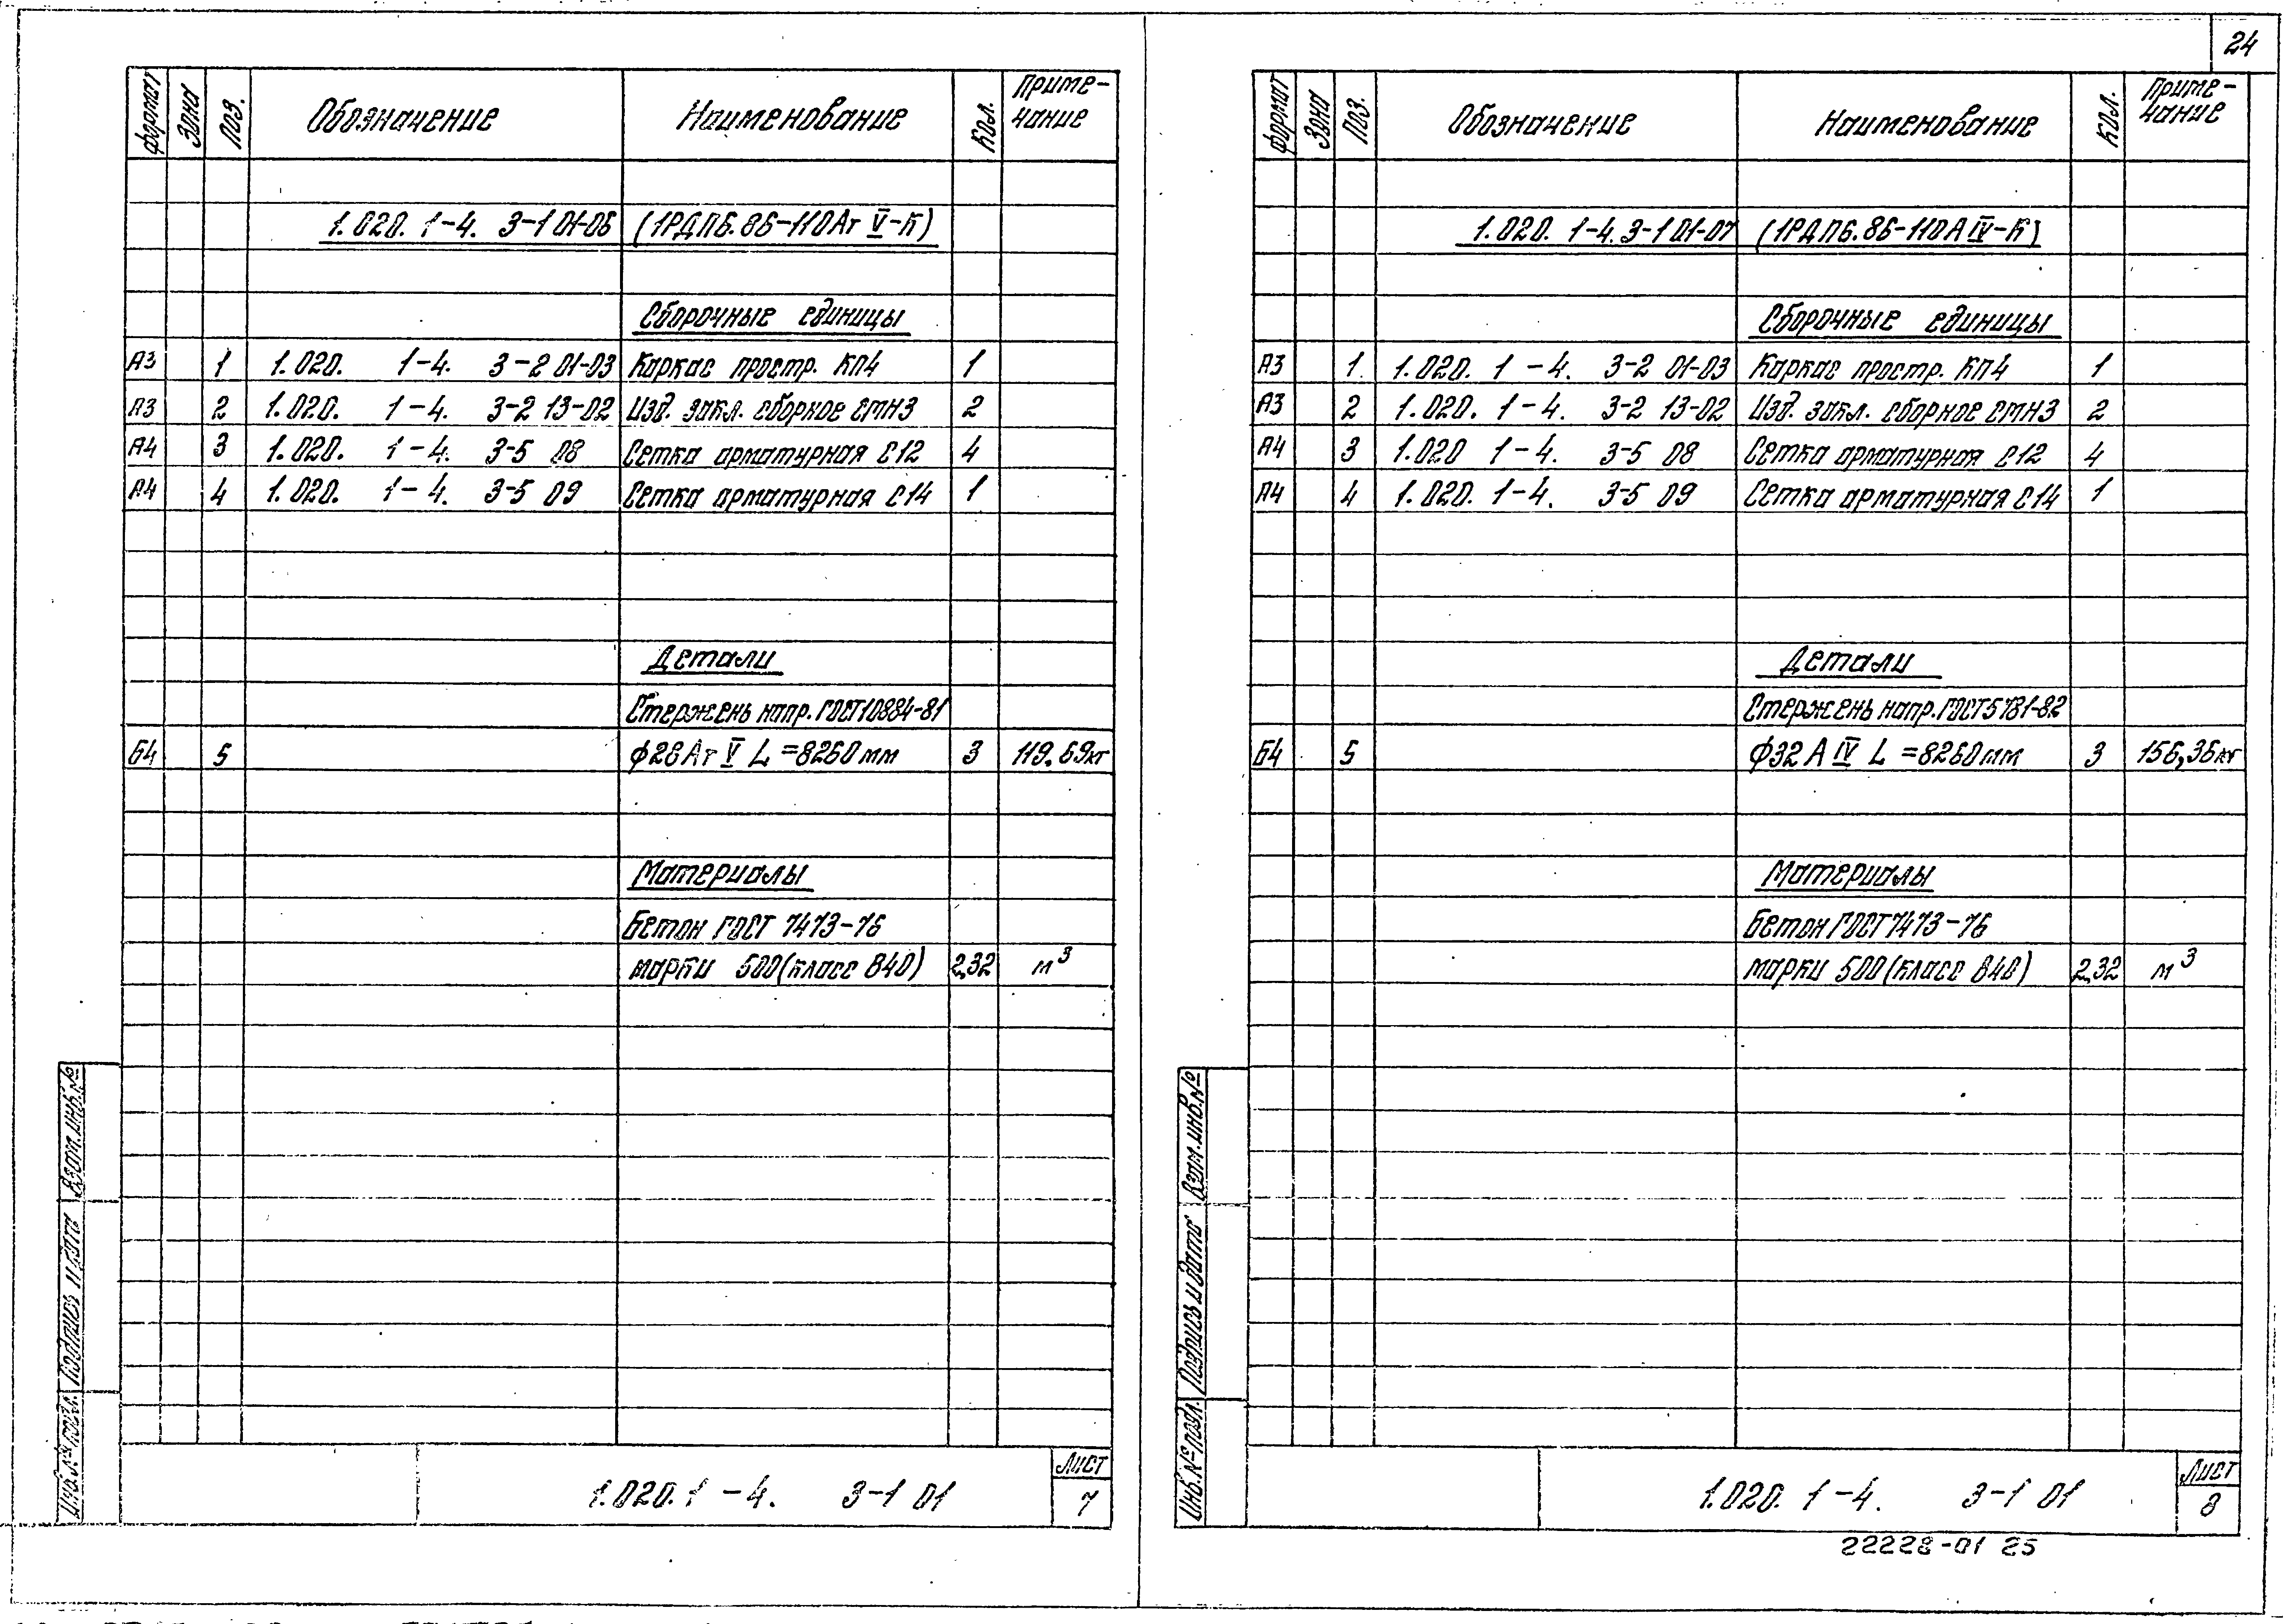 24
формат Зона Поз. Обозначение Наименование Кол. Приме-
чание
1.020. 1-4. 3-1 01-06 (1РДП6.86-110Ат V-К)
Сборочные единицы
А3 1 1.020. 1-4. 3-2 01-03 Каркас простр. КП4 1
А3 2 1.020. 1-4. 3-2 13-02 Изд. закл. сборное СМН3 2
А4 3 1.020. 1-4. 3-5 08 Сетка арматурная С12 4
А4 4 1.020. 1-4. 3-5 09 Сетка арматурная С14 1
Детали
Стержень напр. ГОСТ 10884-81
Б4 5 ϕ28 Ат V L =8260 мм 3 119.69кг
Материалы
Бетон ГОСТ 7473-76
марки 500 (класс В40) 2,32 м³
Взам. инв. №
Подпись и дата
Инв. № подл.
1.020.1-4. 3-1 01
Лист
7
формат Зона Поз. Обозначение Наименование Кол. Приме-
чание
1.020. 1-4. 3-1 01-07 (1РДП6.86-110А IV-К)
Сборочные единицы
А3 1. 1.020. 1-4. 3-2 01-03 Каркас простр. КП4 1
А3 2 1.020. 1-4. 3-2 13-02 Изд. закл. сборное СМН3 2
А4 3 1.020 1-4. 3-5 08 Сетка арматурная С12 4
А4 4 1.020. 1-4. 3-5 09 Сетка арматурная С14 1
Детали
Стержень напр. ГОСТ 5781-82
Б4 5 ϕ32 А IV L =8260 мм 3 156,36кг
Материалы
Бетон ГОСТ 7473-76
марки 500 (класс В40) 2,32 м³
Взам. инв. №
Подпись и дата
Инв. № подл.
1.020. 1-4. 3-1 01
Лист
8
22228-01 25